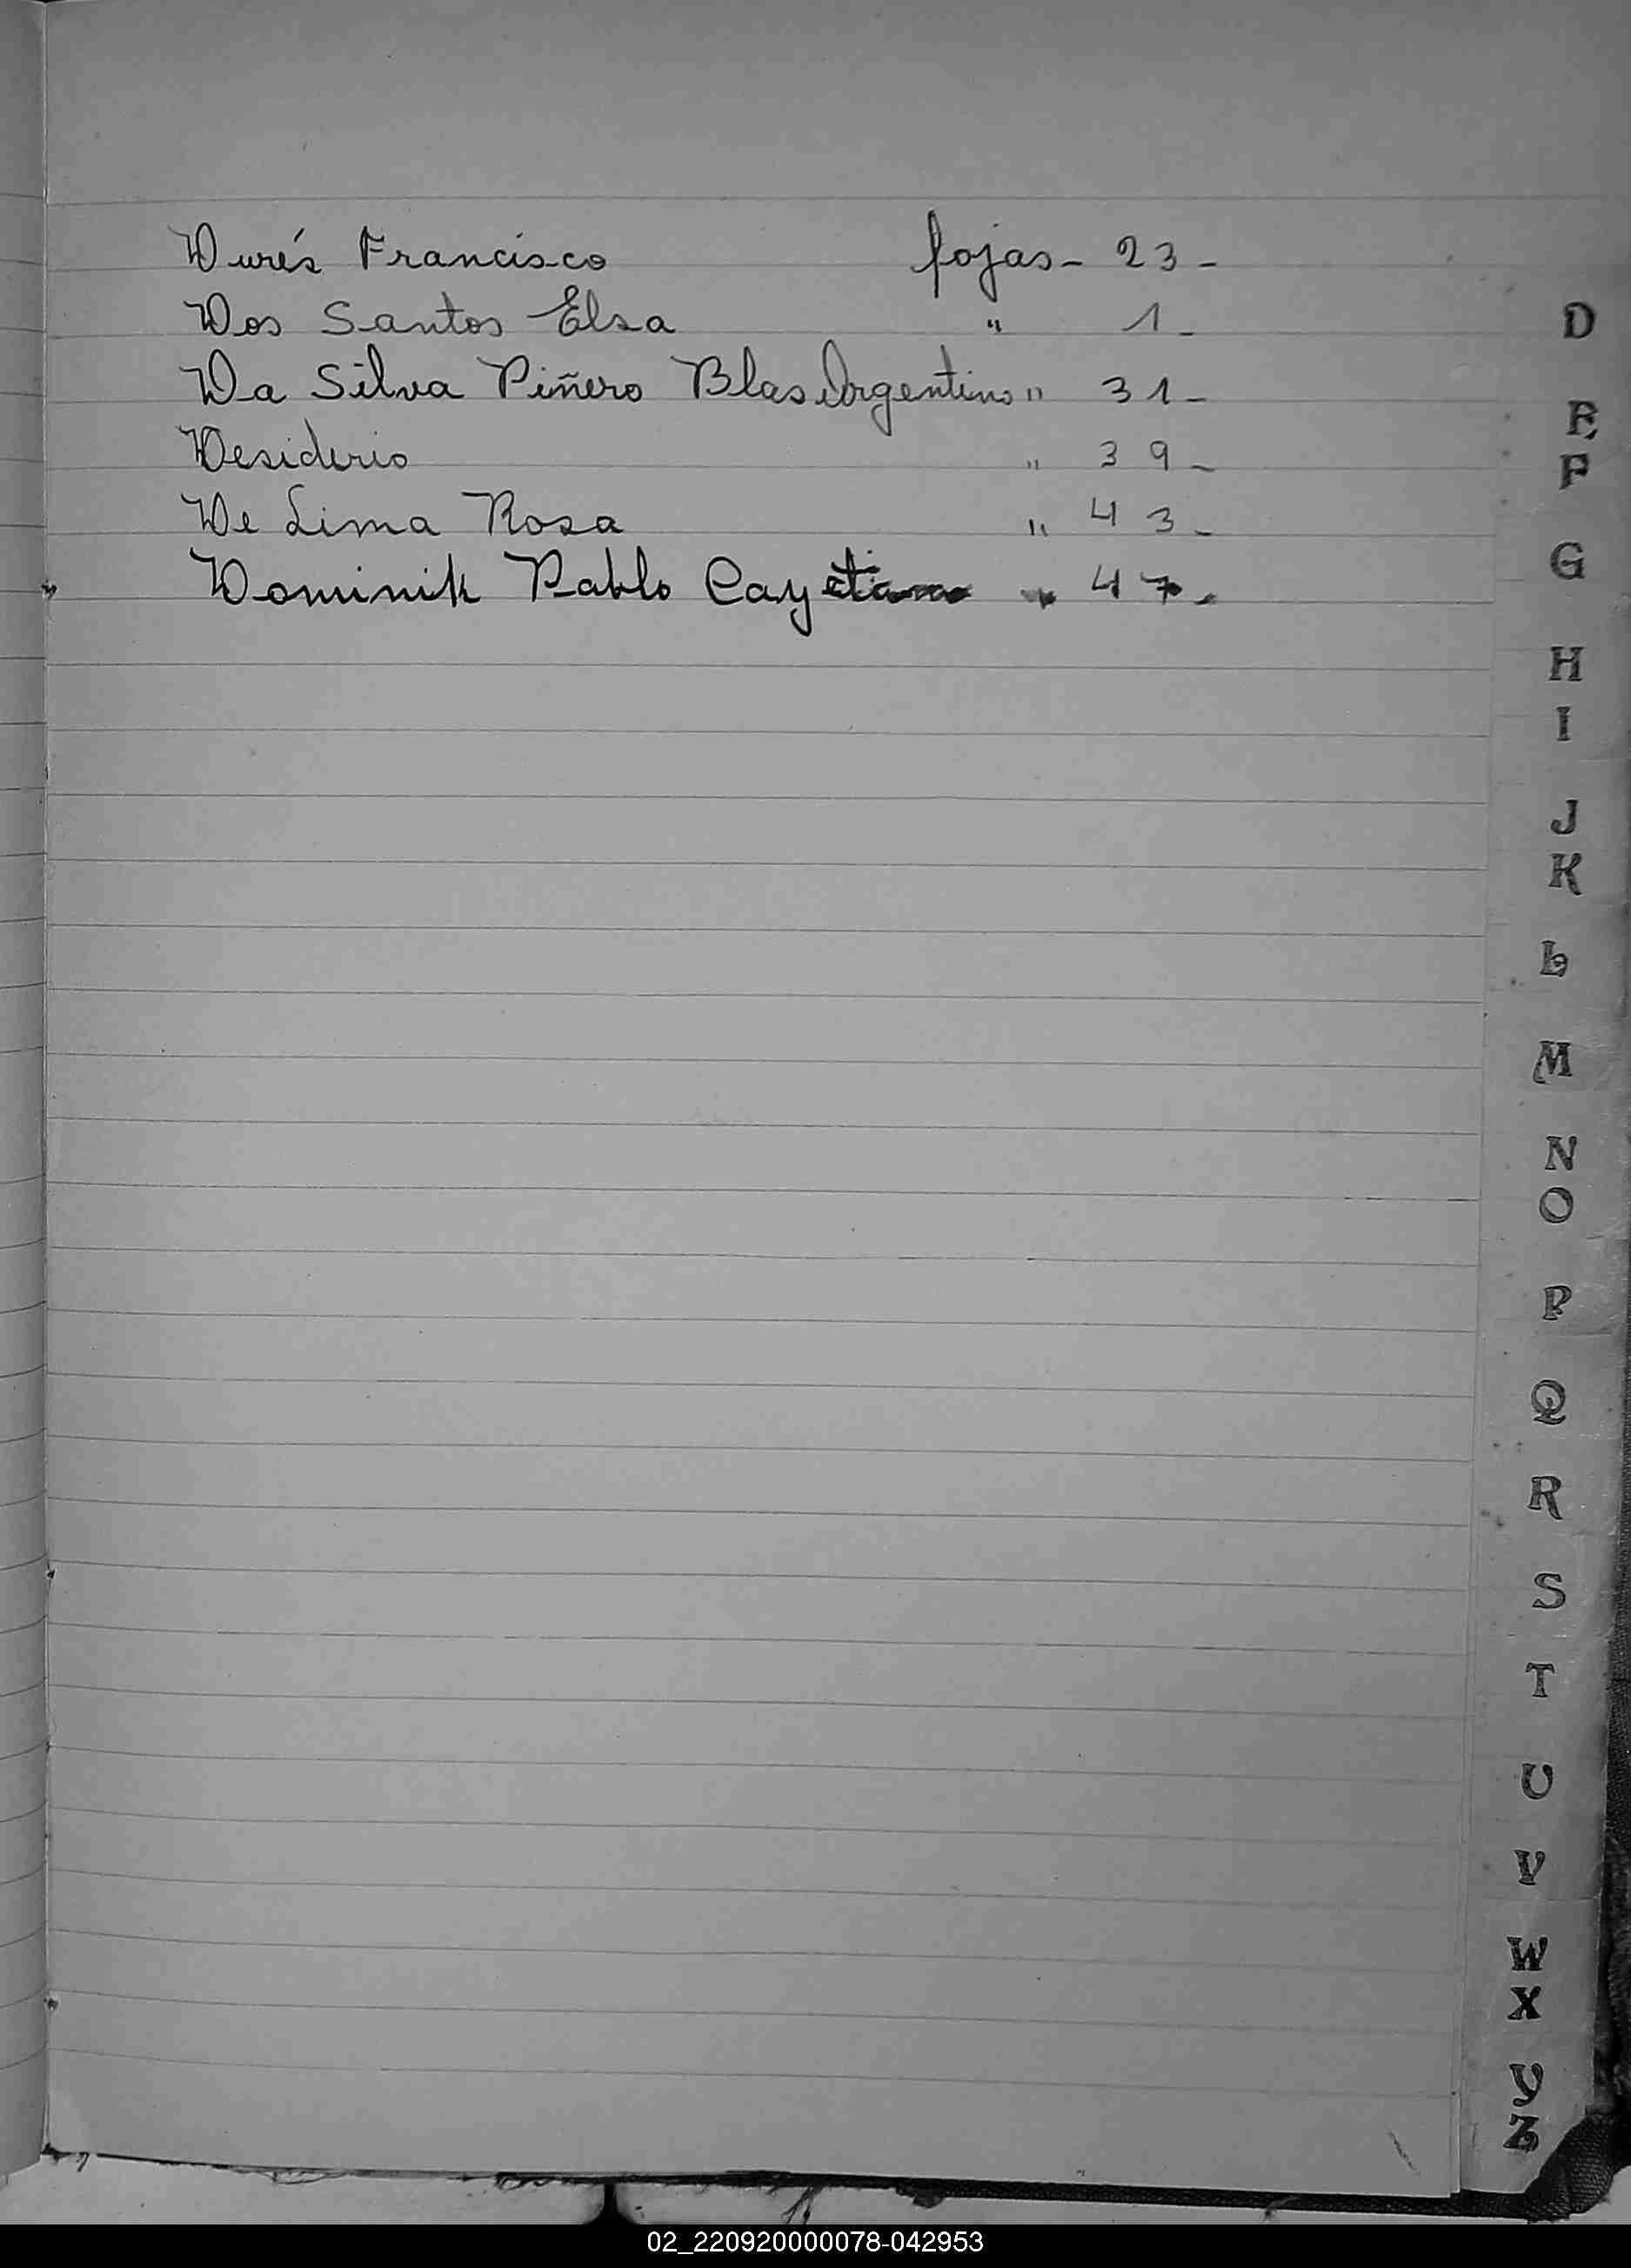 Durés Francisco fojas - 23 -
Dos Santos Elsa " 1 -
Da Silva Piñero Blas Argentino " 31 -
Desiderio " 39 -
De Lima Rosa " 43 -
Dominik Pablo Cayetano " 47 -
D
E
F
G
H
I
J
K
L
M
N
O
P
Q
R
S
T
U
V
W
X
Y
Z
02_220920000078-042953